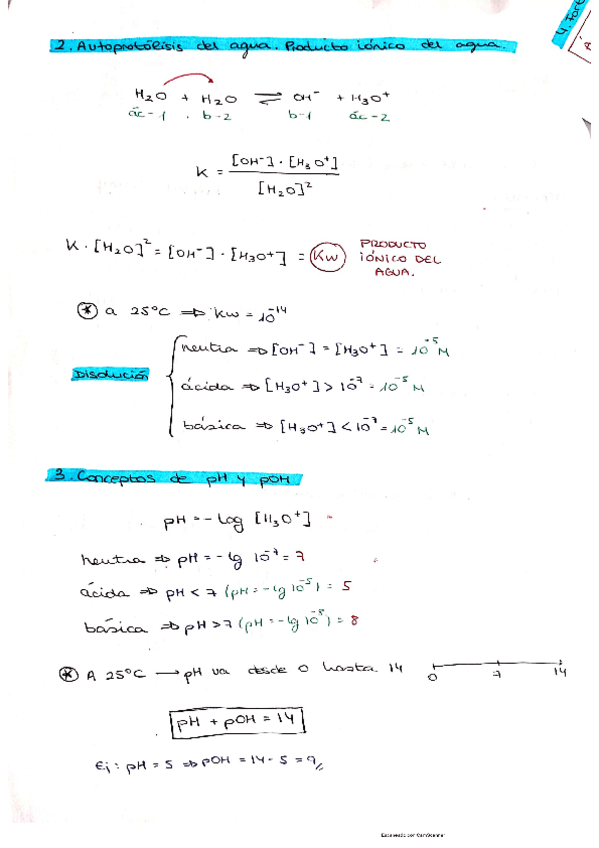 2. Autoprotólisis del agua. Producto iónico del agua.
4. Fort
H₂O + H₂O ⇌ OH⁻ + H₃O⁺
ác-1 . b-2 b-1 ác-2
K = [OH⁻]·[H₃O⁺] / [H₂O]²
K·[H₂O]² = [OH⁻]·[H₃O⁺] = Kw PRODUCTO IÓNICO DEL AGUA.
* a 25°C ⇒ Kw = 10⁻¹⁴
Disolución
neutra ⇒ [OH⁻] = [H₃O⁺] = 10⁻⁵ M
ácida ⇒ [H₃O⁺] > 10⁻⁷ = 10⁻⁵ M
básica ⇒ [H₃O⁺] < 10⁻⁷ = 10⁻⁵ M
3. Conceptos de pH y pOH
pH = - log [H₃O⁺]
neutra ⇒ pH = - lg 10⁻⁷ = 7
ácida ⇒ pH < 7 (pH = - lg 10⁻⁵) = 5
básica ⇒ pH > 7 (pH = - lg 10⁻⁸) = 8
* A 25°C → pH va desde 0 hasta 14
0 7 14
pH + pOH = 14
Ej: pH = 5 ⇒ pOH = 14 - 5 = 9
Escaneado con CamScanner